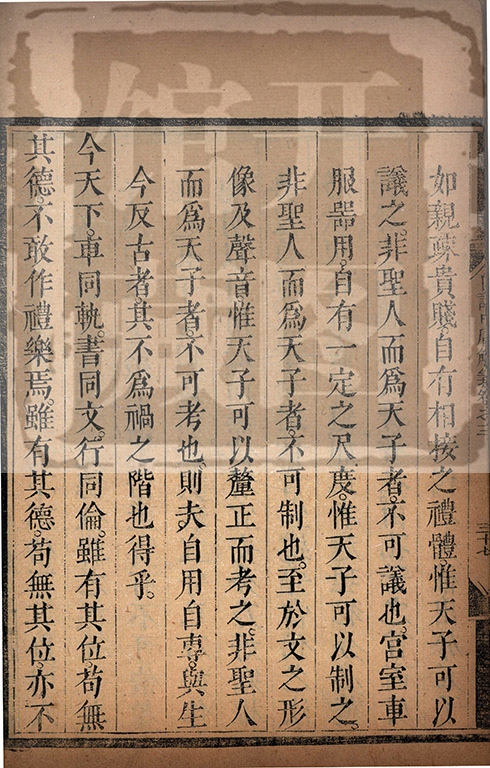 如親疎貴賤自有相接之禮體惟天子可以
議之。非聖人而爲天子者不可議也。宮室車
服器用。自有一定之尺度。惟天子可以制之。
非聖人而爲天子者。不可制也。至於文之形
像及聲音。惟天子可以釐正而考之。非聖人
而爲天子者。不可考也。則夫自用自專。與生
今反古者。其不爲禍之階也得乎。
今天下。車同軌。書同文。行同倫。雖有其位。苟無
其德。不敢作禮樂焉。雖有其德。苟無其位。亦不